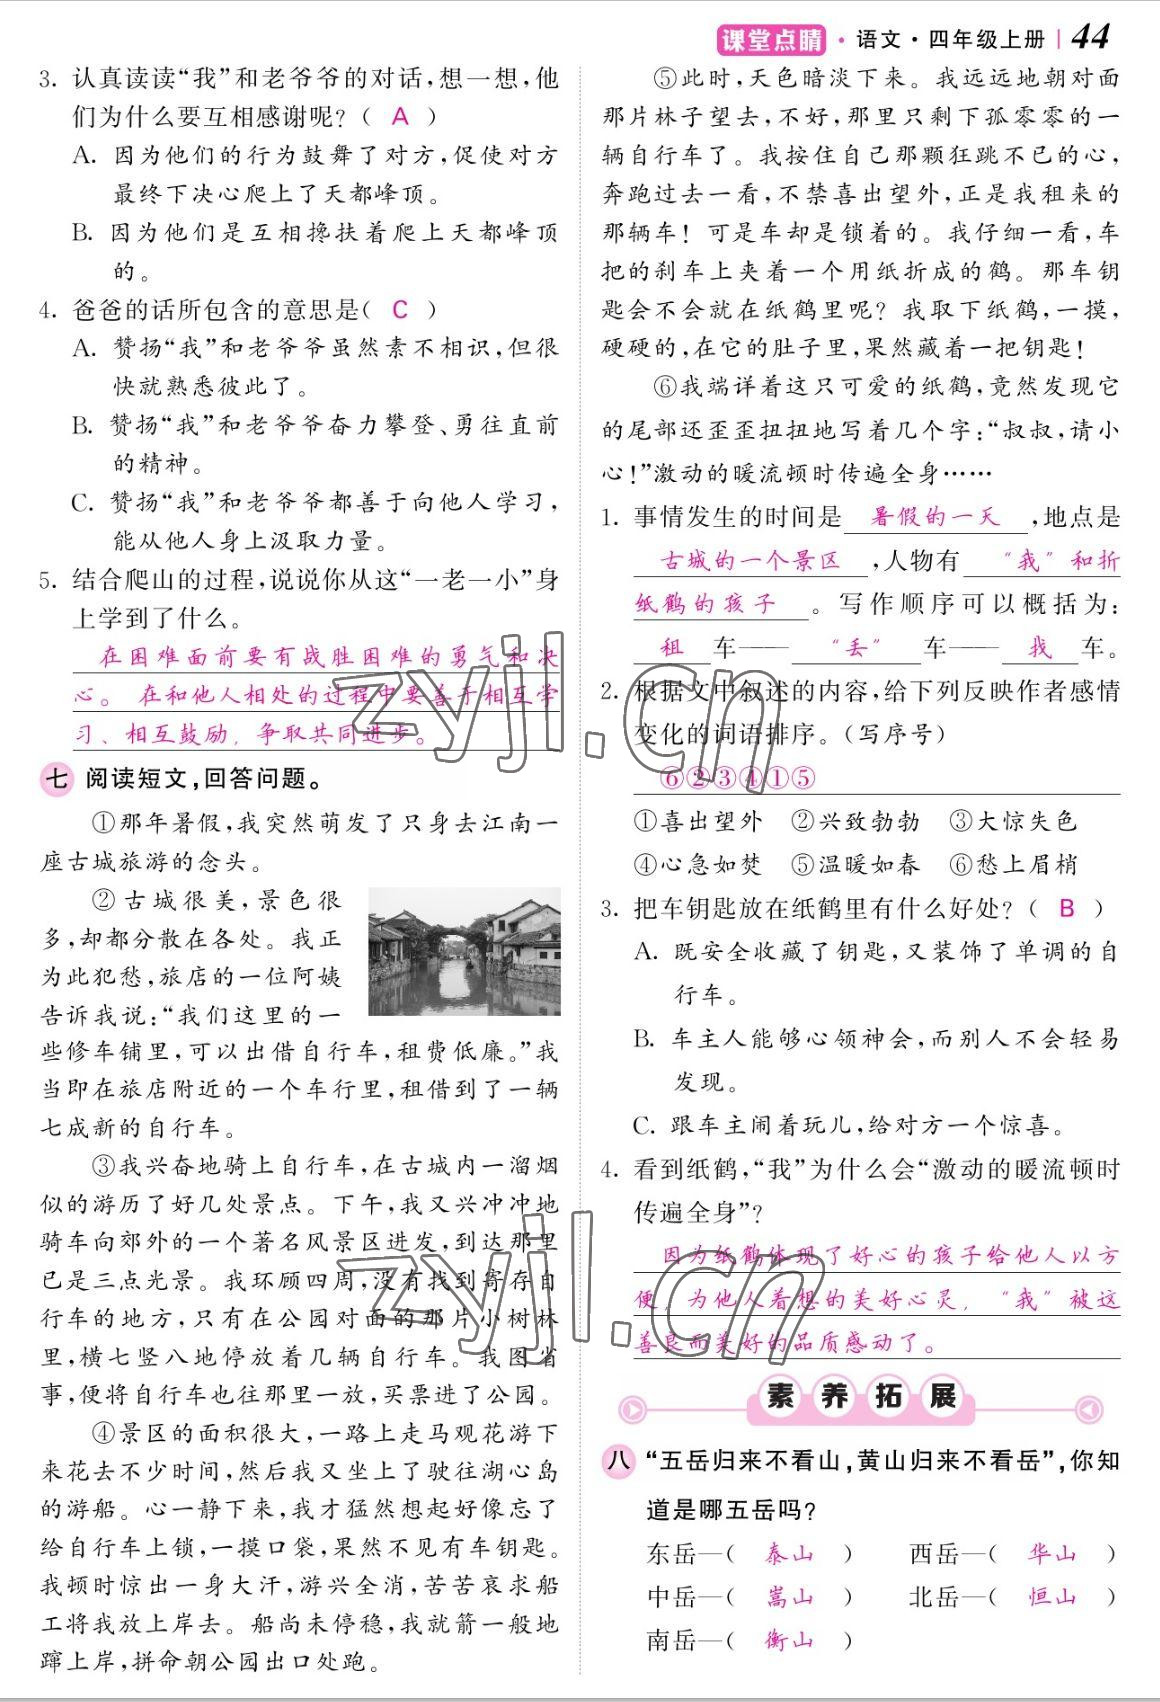 课堂点睛·语文·四年级上册 44
3. 认真读读“我”和老爷爷的对话,想一想,他
们为什么要互相感谢呢?( A )
A. 因为他们的行为鼓舞了对方,促使对方
最终下决心爬上了天都峰顶。
B. 因为他们是互相搀扶着爬上天都峰顶
的。
4. 爸爸的话所包含的意思是( C )
A. 赞扬“我”和老爷爷虽然素不相识,但很
快就熟悉彼此了。
B. 赞扬“我”和老爷爷奋力攀登、勇往直前
的精神。
C. 赞扬“我”和老爷爷都善于向他人学习,
能从他人身上汲取力量。
5. 结合爬山的过程,说说你从这“一老一小”身
上学到了什么。
在困难面前要有战胜困难的勇气和决
心。 在和他人相处的过程中要善于相互学
习、相互鼓励,争取共同进步。
七 阅读短文,回答问题。
①那年暑假,我突然萌发了只身去江南一
座古城旅游的念头。
②古城很美,景色很
多,却都分散在各处。我正
为此犯愁,旅店的一位阿姨
告诉我说:“我们这里的一
些修车铺里,可以出借自行车,租费低廉。”我
当即在旅店附近的一个车行里,租借到了一辆
七成新的自行车。
③我兴奋地骑上自行车,在古城内一溜烟
似的游历了好几处景点。下午,我又兴冲冲地
骑车向郊外的一个著名风景区进发,到达那里
已是三点光景。我环顾四周,没有找到寄存自
行车的地方,只有在公园对面的那片小树林
里,横七竖八地停放着几辆自行车。我图省
事,便将自行车也往那里一放,买票进了公园。
④景区的面积很大,一路上走马观花游下
来花去不少时间,然后我又坐上了驶往湖心岛
的游船。心一静下来,我才猛然想起好像忘了
给自行车上锁,一摸口袋,果然不见有车钥匙。
我顿时惊出一身大汗,游兴全消,苦苦哀求船
工将我放上岸去。船尚未停稳,我就箭一般地
蹿上岸,拼命朝公园出口处跑。
⑤此时,天色暗淡下来。我远远地朝对面
那片林子望去,不好,那里只剩下孤零零的一
辆自行车了。我按住自己那颗狂跳不已的心,
奔跑过去一看,不禁喜出望外,正是我租来的
那辆车!可是车却是锁着的。我仔细一看,车
把的刹车上夹着一个用纸折成的鹤。那车钥
匙会不会就在纸鹤里呢?我取下纸鹤,一摸,
硬硬的,在它的肚子里,果然藏着一把钥匙!
⑥我端详着这只可爱的纸鹤,竟然发现它
的尾部还歪歪扭扭地写着几个字:“叔叔,请小
心!”激动的暖流顿时传遍全身……
1. 事情发生的时间是 暑假的一天 ,地点是
古城的一个景区 ,人物有 “我”和折
纸鹤的孩子 。写作顺序可以概括为:
租 车—— “丢” 车—— 找 车。
2. 根据文中叙述的内容,给下列反映作者感情
变化的词语排序。(写序号)
⑥②③④①⑤
①喜出望外 ②兴致勃勃 ③大惊失色
④心急如焚 ⑤温暖如春 ⑥愁上眉梢
3. 把车钥匙放在纸鹤里有什么好处?( B )
A. 既安全收藏了钥匙,又装饰了单调的自
行车。
B. 车主人能够心领神会,而别人不会轻易
发现。
C. 跟车主闹着玩儿,给对方一个惊喜。
4. 看到纸鹤,“我”为什么会“激动的暖流顿时
传遍全身”?
因为纸鹤体现了好心的孩子给他人以方
便,为他人着想的美好心灵,“我”被这
善良而美好的品质感动了。
素养拓展
八 “五岳归来不看山,黄山归来不看岳”,你知
道是哪五岳吗?
东岳—( 泰山 ) 西岳—( 华山 )
中岳—( 嵩山 ) 北岳—( 恒山 )
南岳—( 衡山 )
zyjl.cn
zyjl.cn